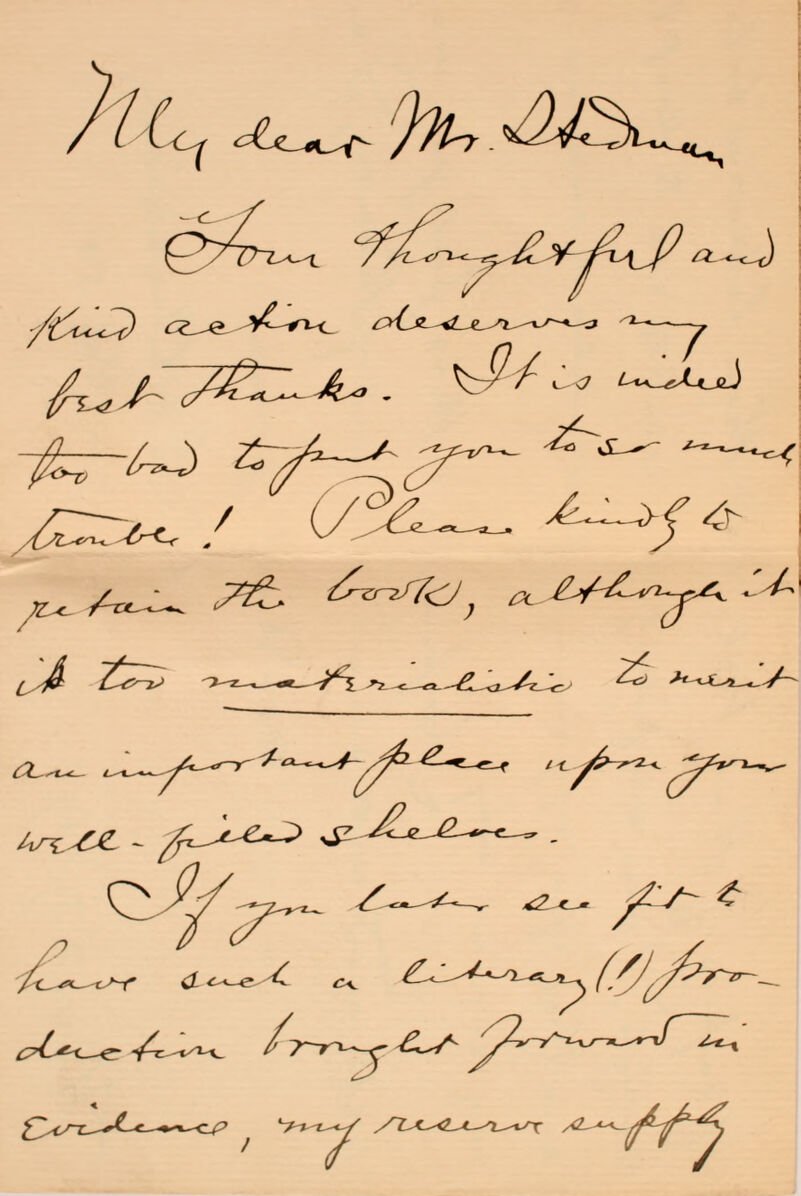 My dear Mr. Stedman
Your thoughtful and
kind action deserves my
best thanks. It is indeed
too bad to put you to so much
trouble! Please kindly to
retain the book, although it
is too materialistic to merit
an important place upon your
well-filled shelves.
If you later see fit to
have such a literary(!) pro-
duction brought forward in
evidence, my reserve supply